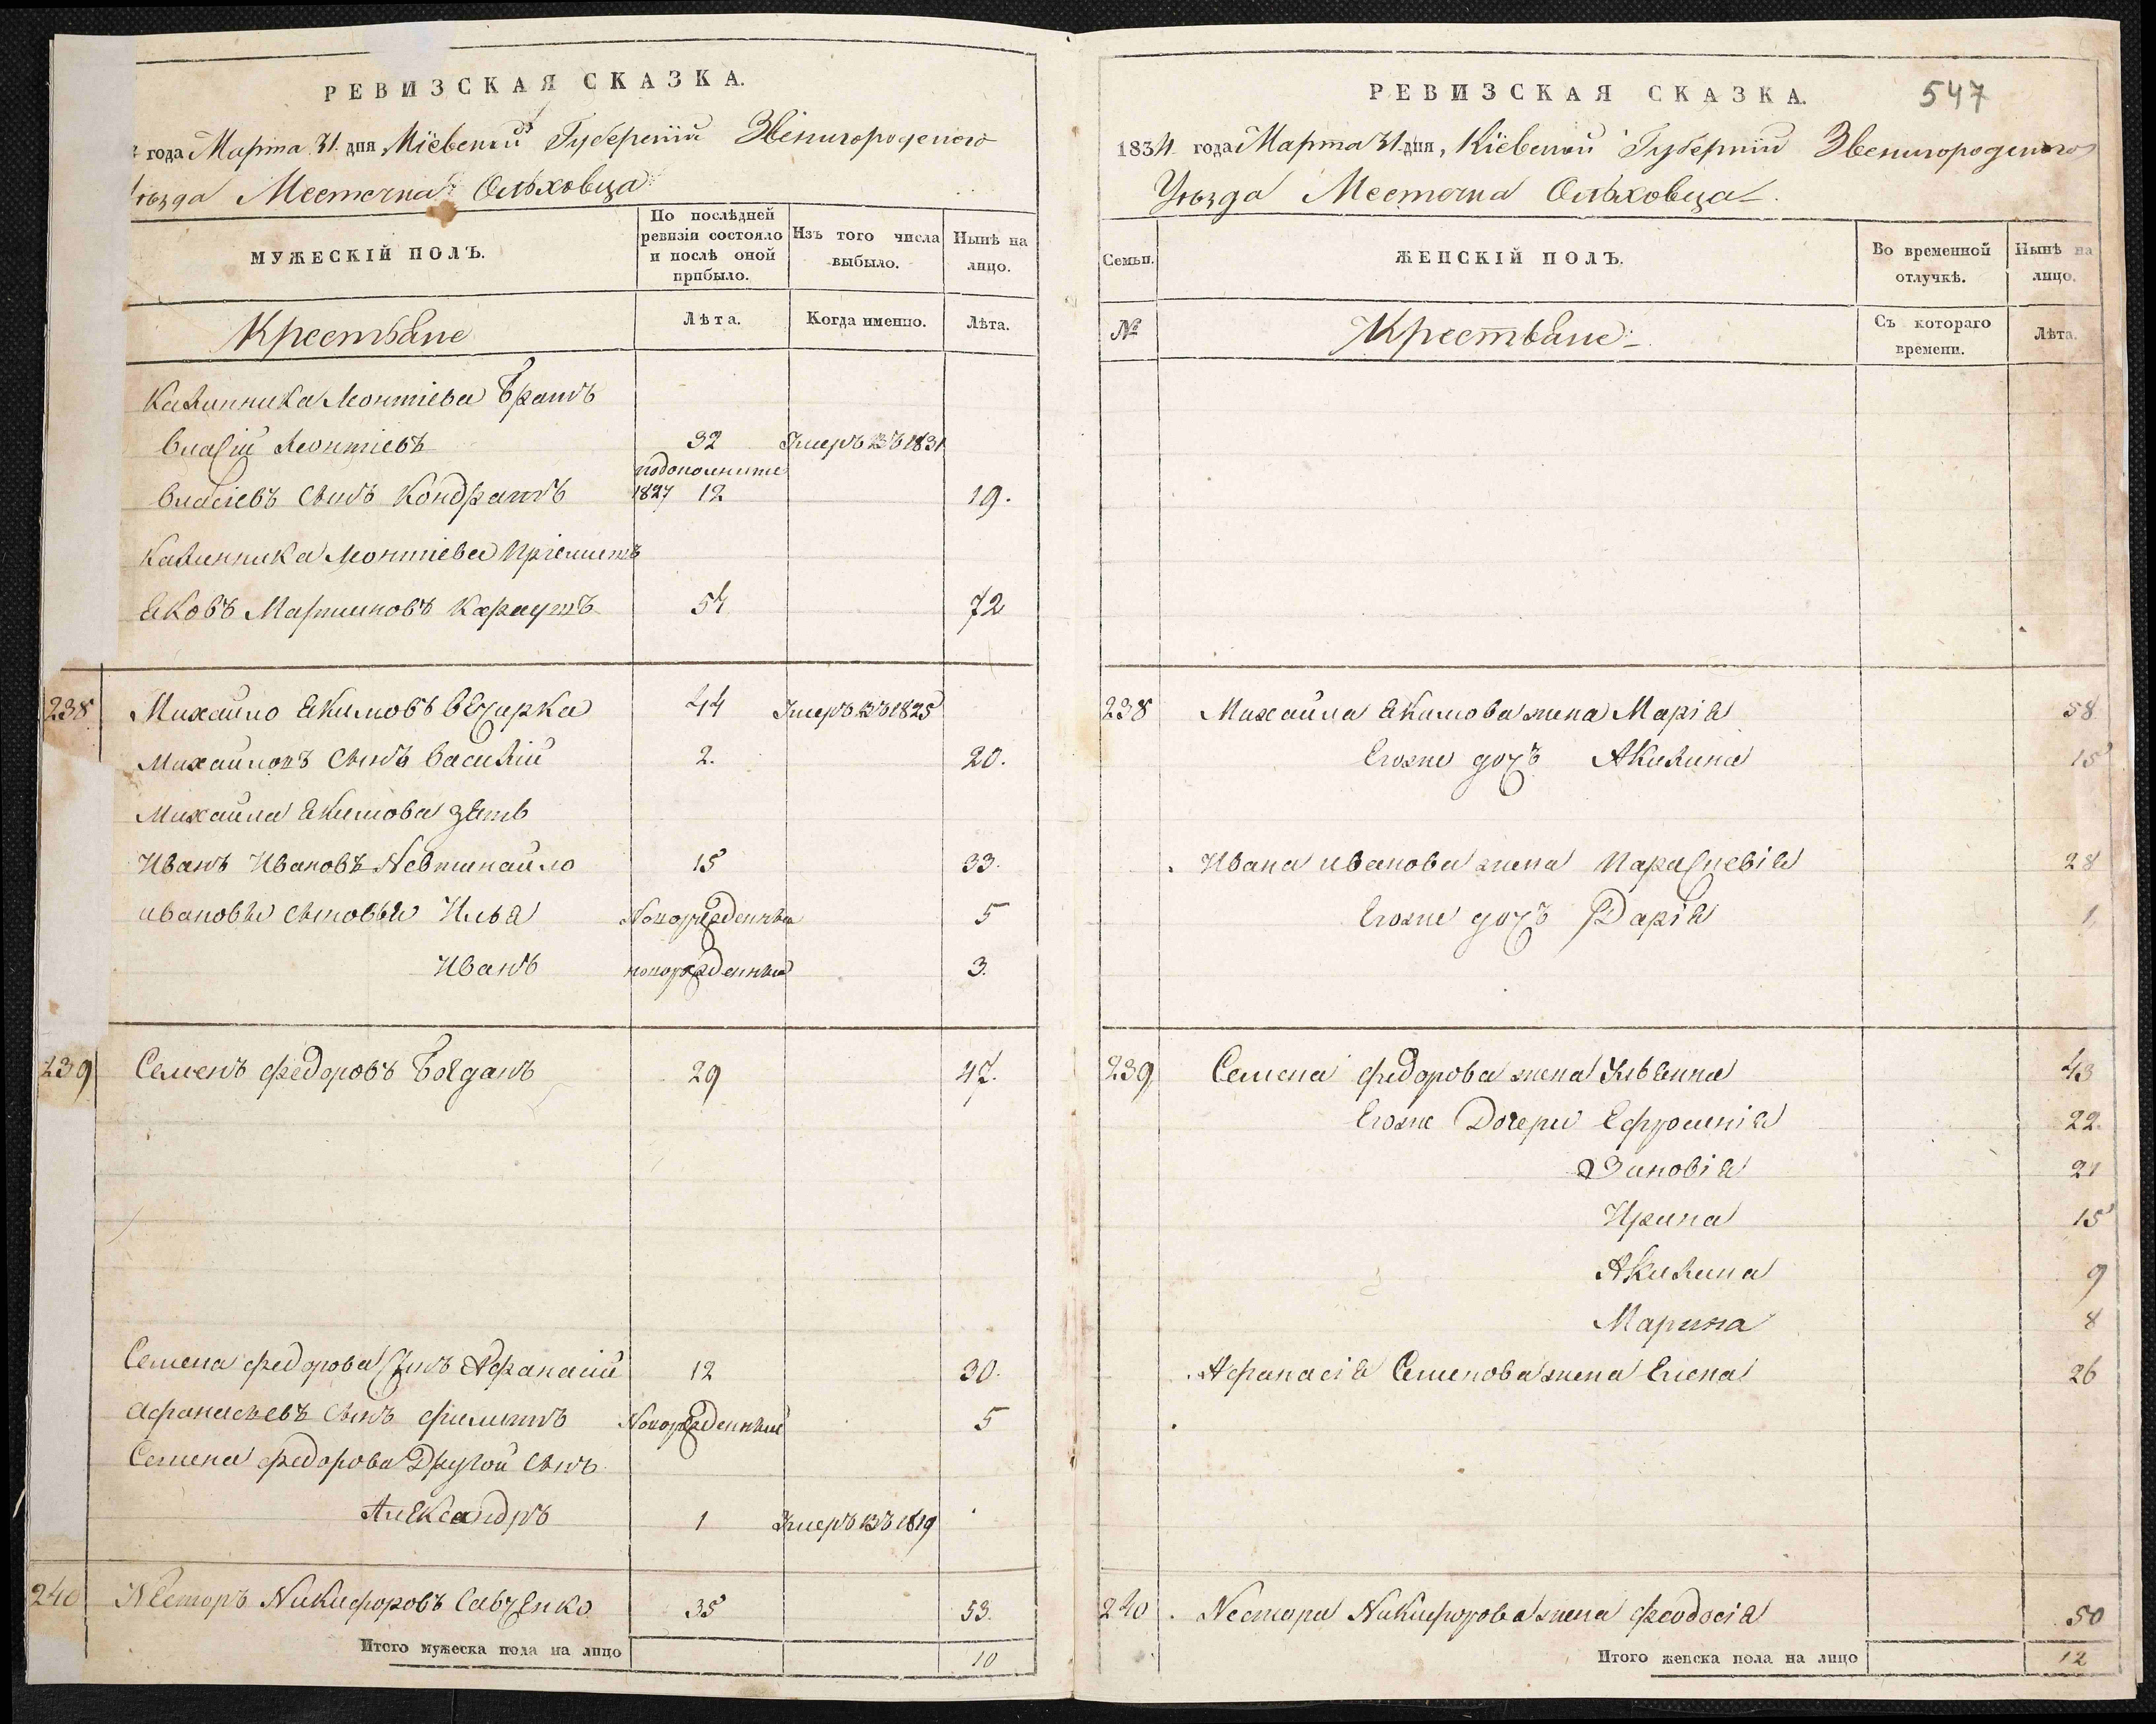 РЕВИЗСКАЯ СКАЗКА.
года Марта 31. дня Кіевской Губерніи Звенигородского
уѣзда Местечка Ольховца
МУЖЕСКІЙ ПОЛЪ.
По послѣдней ревизіи состояло и послѣ оной прибыло.
Изъ того числа выбыло.
Нынѣ на лицо.
Крестьяне
Лѣта.
Когда именно.
Лѣта.
Калинника Леонтіева Братъ
Власій Леонтіевъ 32 Умеръ въ 1831
Власіевъ сынъ Кондратъ 1827 12 19.
Калинника Леонтіева Пріемышъ
Яковъ Мартиновъ 54 72
238 Михайло Якимовъ 44 Умеръ въ 1825
Михайловъ сынъ Василій 2. 20.
Михайла Якимова зять
Иванъ Ивановъ 15 33.
Ивановы сыновья Илья Новорожденный 5
Иванъ новорожденный 3.
239 Семенъ Федоровъ Богданъ 29 47.
Семена Федорова сынъ Афанасій 12 30.
Афанасьевъ сынъ Филиппъ Новорожденный 5
Семена Федорова Другой сынъ
Александръ 1 Умеръ въ 1819
240 Несторъ Никифоровъ Савченко 35 53.
Итого мужеска пола на лицо 10
РЕВИЗСКАЯ СКАЗКА.
547
1834 года Марта 31 дня, Кіевской Губерніи Звенигородского
Уѣзда Местечка Ольховца
Семьи.
ЖЕНСКІЙ ПОЛЪ.
Во временной отлучкѣ.
Нынѣ на лицо.
№
Крестьяне
Съ котораго времени.
Лѣта.
238 Михайла Якимова жена Марія 58
Егоже дочь Акилина 15
Ивана Иванова жена Параскевія 28
Егоже дочь Дарія 1
239 Семена Федорова жена Ульянна 43
Егоже Дочери Ефросинія 22.
Зиновія 21
Ирина 15
Акилина 9
Марина 8
Афанасія Семенова жена Елена 26
240 Нестора Никифорова жена Феодосія 50
Итого женска пола на лицо 12